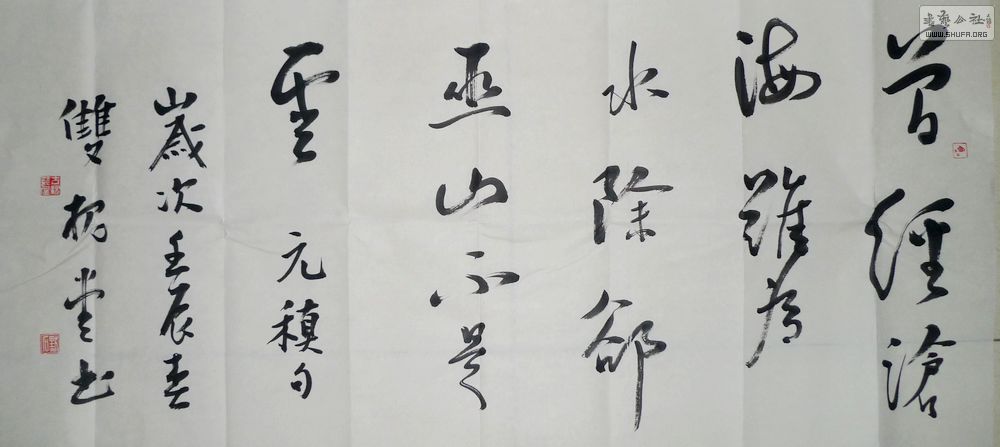 曾經滄
海難為
水除卻
巫山不是
雲 元稹句
歲次壬辰春
雙 堂書
書藝公社
WWW.SHUFA.ORG